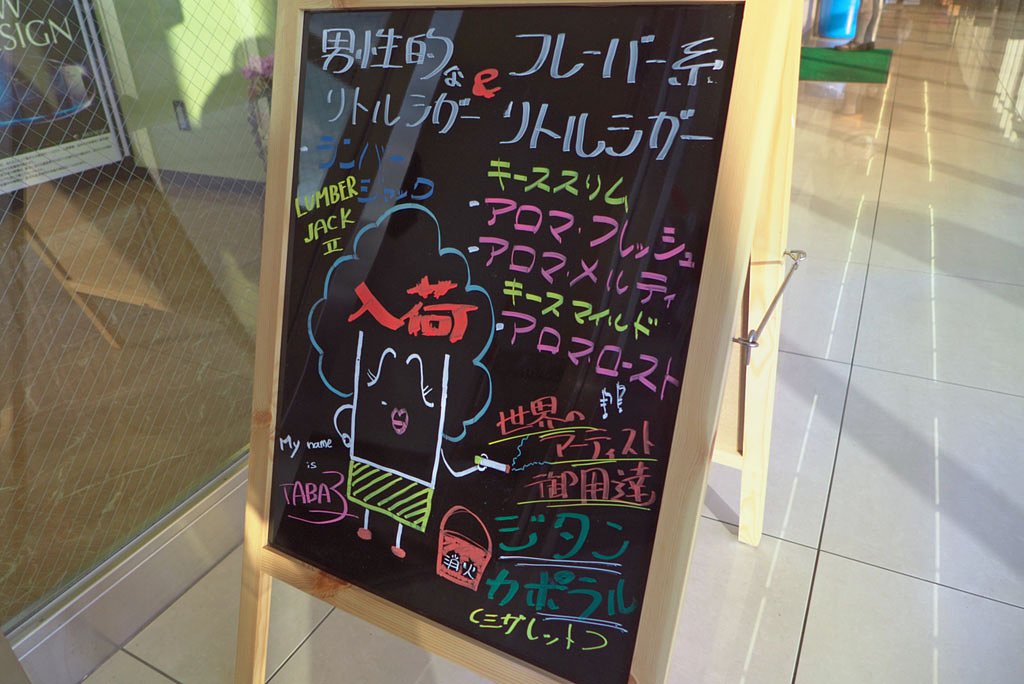 W
ESIGN
男性的な
リトルシガー
e
フレーバー系
リトルシガー
・シンバー
ジャック
LUMBER
JACK
II
キーススリム
・アロマ・フレッシュ
・アロマ・メルティ
キースマイルド
・アロマ・ロースト
入荷
My name
is
TABA子
世界の
アーティスト
御用達
ジタン
カポラル
(シガレット)
消火